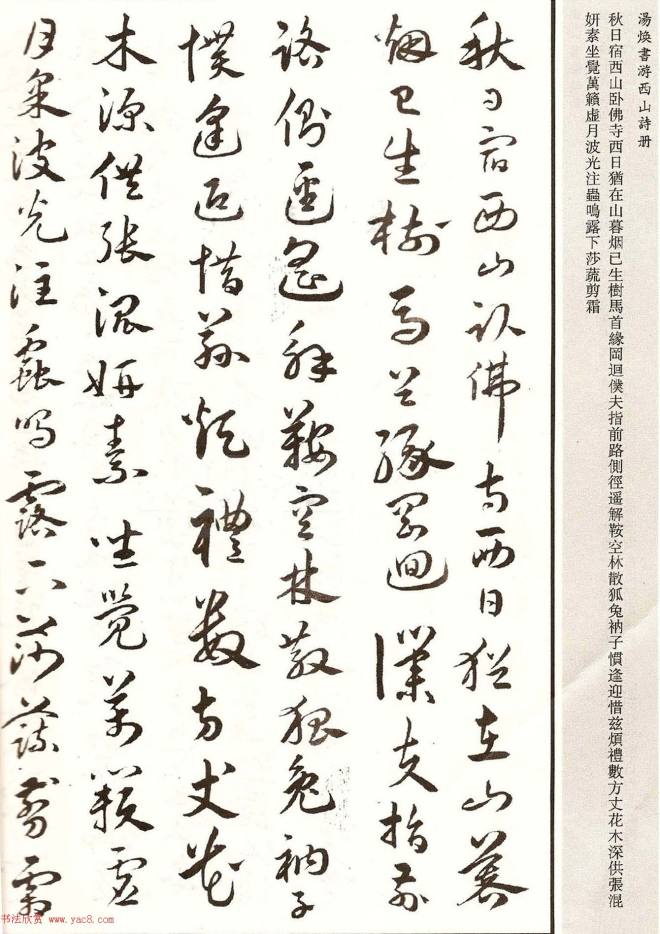 湯煥書游西山詩册
秋日宿西山卧佛寺西日猶在山暮烟已生樹馬首緣岡迴僕夫指前路側徑遥解鞍空林散狐兔衲子慣逢迎惜兹煩禮數方丈花木深供張混
妍素坐覺萬籟虚月波光注蟲鳴露下莎蔬剪霜
秋日宿西山卧佛寺西日猶在山暮
烟已生樹馬首緣岡迴僕夫指前
路側逕遥解鞍空林散狐兔衲子
慣逢迎惜兹煩禮數方丈花
木深供張混妍素坐覺萬籟虚
月來波光注蟲鳴露下莎蔬剪霜
书法欣赏 www.yac8.com